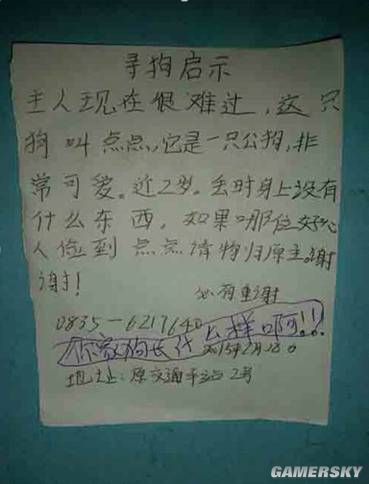 寻狗启示
主人现在很难过，这只
狗叫点点，它是一只公狗，非
常可爱。近2岁。丢时身上没有
什么东西，如果哪位好心
人捡到点点请物归原主谢
谢！
必有重谢
0835-6217640
你家狗长什么样啊!!
2015年2月28日
地址：原交通车站2号
GAMERSKY